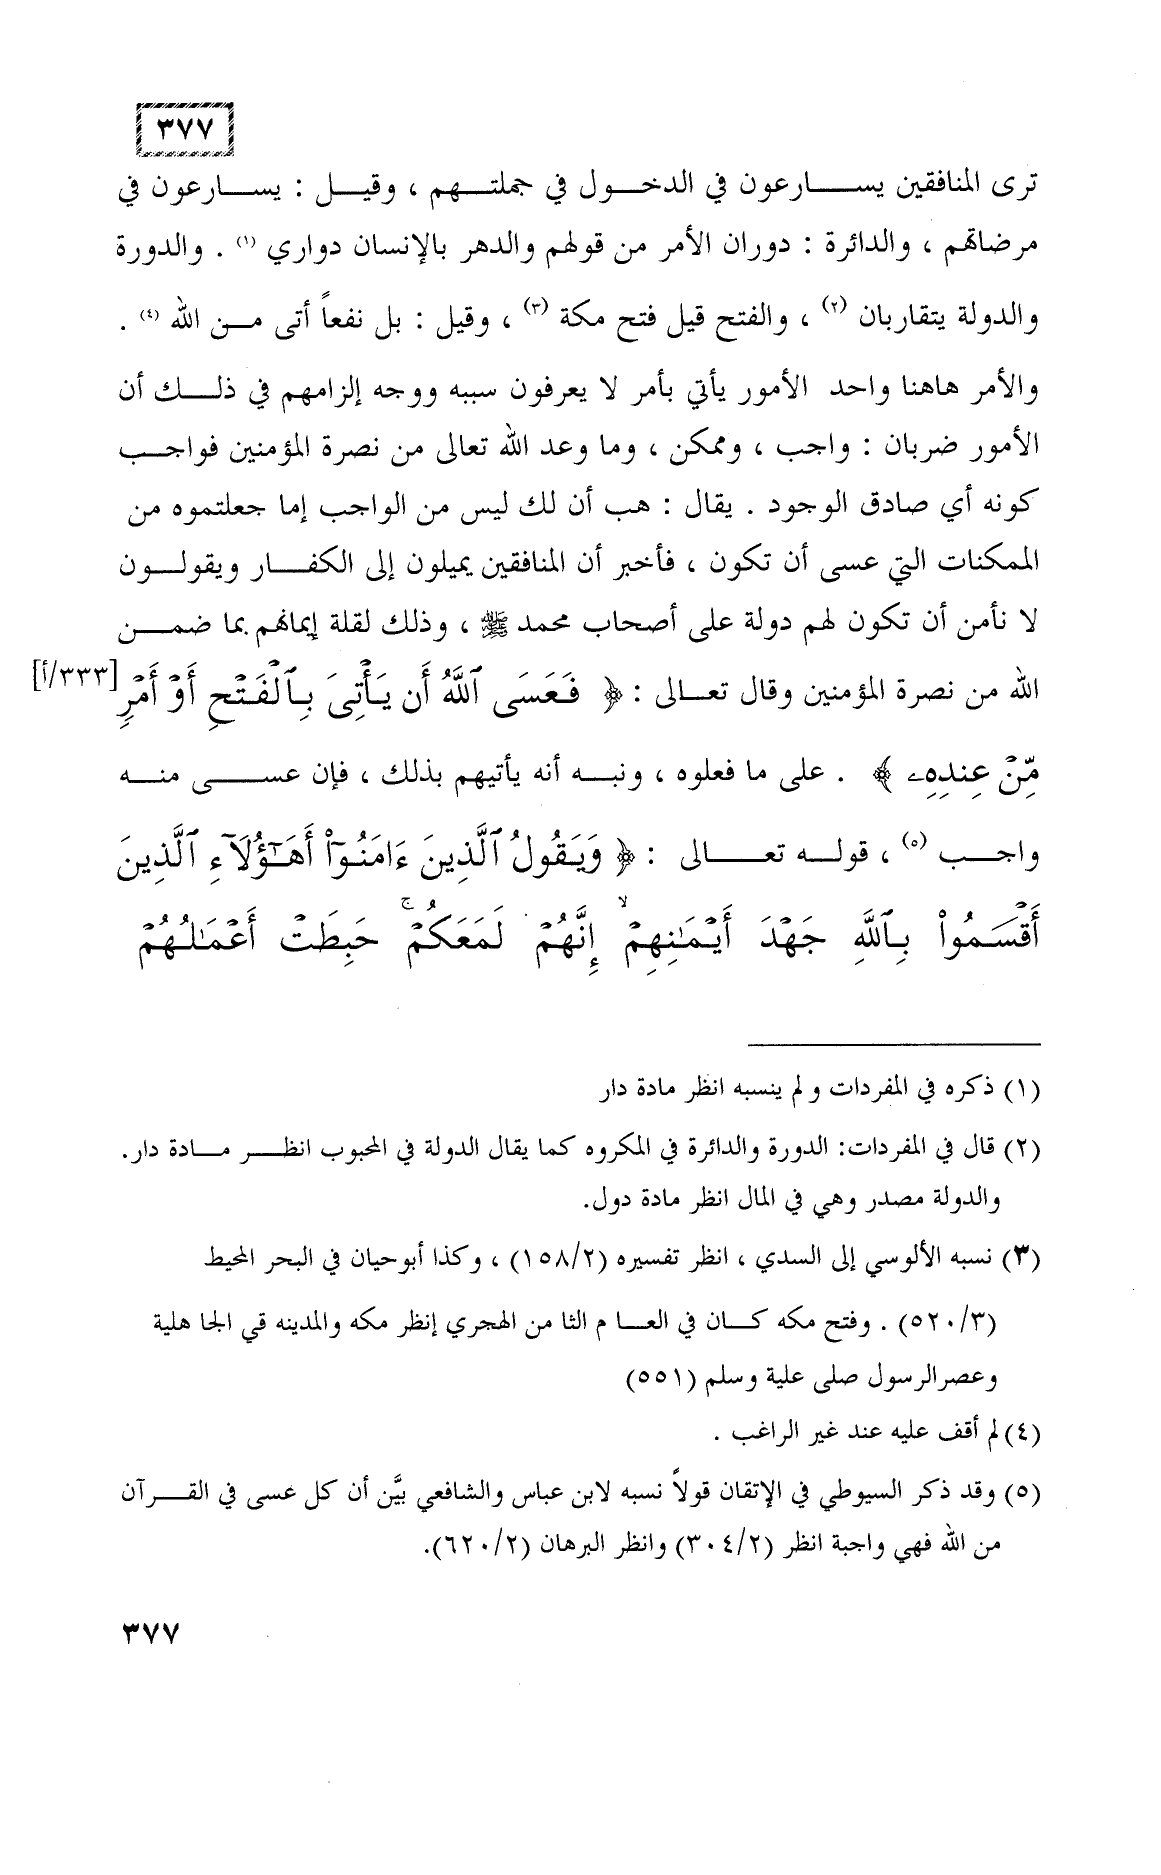 ٣٧٧
ترى المنافقين يسارعون في الدخول في جملتهم ، وقيل : يسارعون في
مرضاتهم ، والدائرة : دوران الأمر من قولهم والدهر بالإنسان دواري (١) . والدورة
والدولة يتقاربان (٢) ، والفتح قيل فتح مكة (٣) ، وقيل : بل نفعاً أتى من الله (٤) .
والأمر هاهنا واحد الأمور يأتي بأمر لا يعرفون سببه ووجه إلزامهم في ذلك أن
الأمور ضربان : واجب ، وممكن ، وما وعد الله تعالى من نصرة المؤمنين فواجب
كونه أي صادق الوجود . يقال : هب أن لك ليس من الواجب إما جعلتموه من
الممكنات التي عسى أن تكون ، فأخبر أن المنافقين يميلون إلى الكفار ويقولون
لا نأمن أن تكون لهم دولة على أصحاب محمد ﷺ ، وذلك لقلة إيمانهم بما ضمن
الله من نصرة المؤمنين وقال تعالى : ﴿ فَعَسَى ٱللَّهُ أَن يَأْتِىَ بِٱلْفَتْحِ أَوْ أَمْرٍ [٣٣٣/أ]
مِّنْ عِندِهِۦ ﴾ . على ما فعلوه ، ونبه أنه يأتيهم بذلك ، فإن عسى منه
واجب (٥) ، قوله تعالى : ﴿ وَيَقُولُ ٱلَّذِينَ ءَامَنُوٓا۟ أَهَٰٓؤُلَآءِ ٱلَّذِينَ
أَقْسَمُوا۟ بِٱللَّهِ جَهْدَ أَيْمَٰنِهِمْ ۙ إِنَّهُمْ لَمَعَكُمْ ۚ حَبِطَتْ أَعْمَٰلُهُمْ
(١) ذكره في المفردات و لم ينسبه انظر مادة دار
(٢) قال في المفردات: الدورة والدائرة في المكروه كما يقال الدولة في المحبوب انظر مادة دار.
والدولة مصدر وهي في المال انظر مادة دول.
(٣) نسبه الألوسي إلى السدي ، انظر تفسيره (١٥٨/٢) ، وكذا أبوحيان في البحر المحيط
(٥٢٠/٣) . وفتح مكه كان في العا م الثا من الهجري إنظر مكه والمدينه قي الجا هلية
وعصرالرسول صلى علية وسلم (٥٥١)
(٤) لم أقف عليه عند غير الراغب .
(٥) وقد ذكر السيوطي في الإتقان قولاً نسبه لابن عباس والشافعي بيَّن أن كل عسى في القرآن
من الله فهي واجبة انظر (٣٠٤/٢) وانظر البرهان (٦٢٠/٢).
٣٧٧